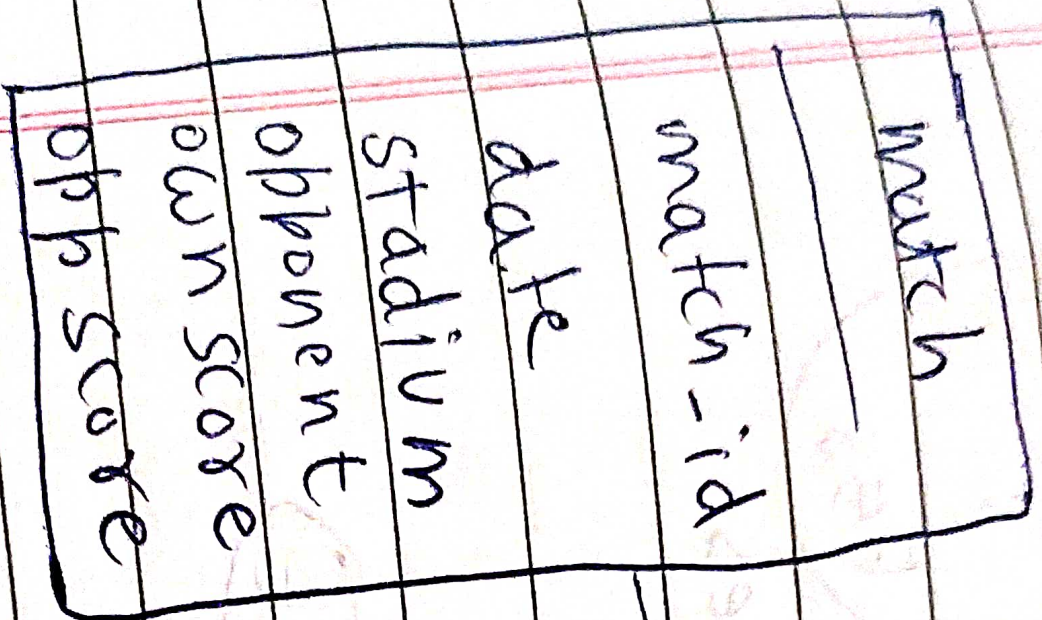 match
match-id
date
stadium
opponent
own score
opp score